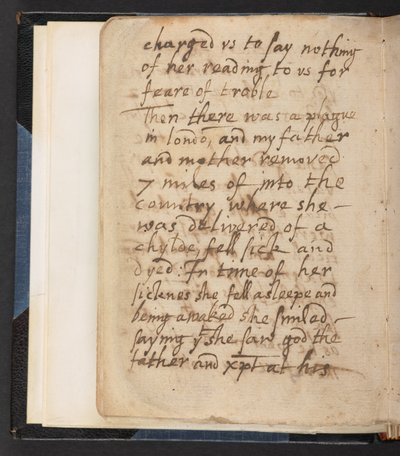 charged vs to say nothing
of her reading to vs for
feare of trable
Then there was a plague
in londō, and my father
and mother removed
7 miles of into the
country where she
was delivered of a
chylde, fell sick and
dyed: In time of her
sicknes she fell a sleepe and
being awaked she smiled
saying yt she saw god the
father and xpt at his